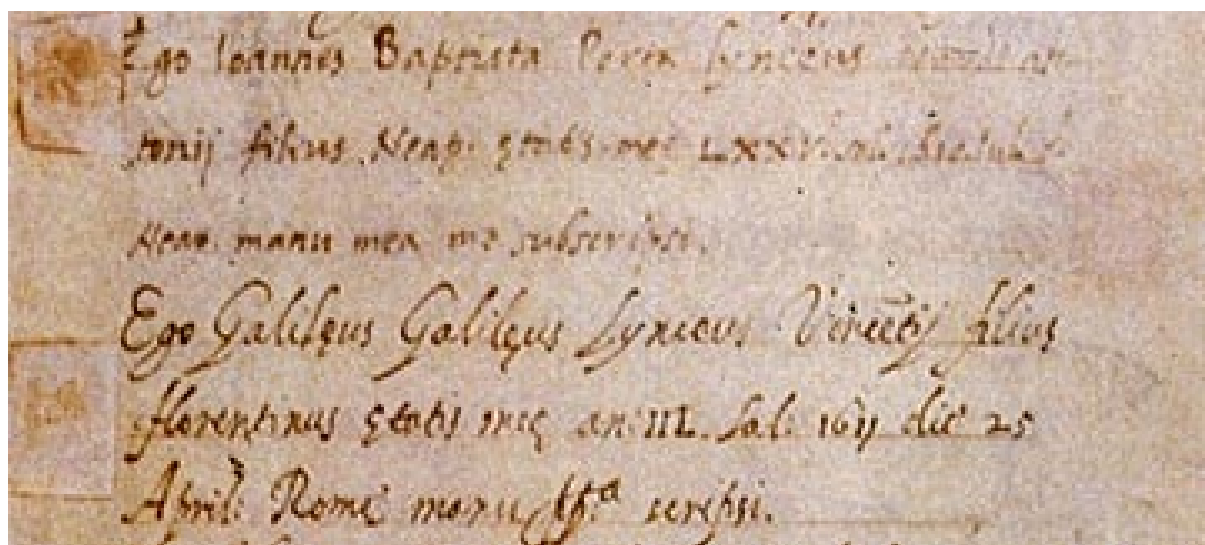 Ego Ioannes Baptista Porta Lynceus
tonij filius Neap. ętatis meę
Neap. manu mea me subscripsi.
Ego Galilęus Galilęus Lynceus Vincētij filius
florentinus ętatis meę an: Sal: 1611 die 25
April: Romę manu scripsi.